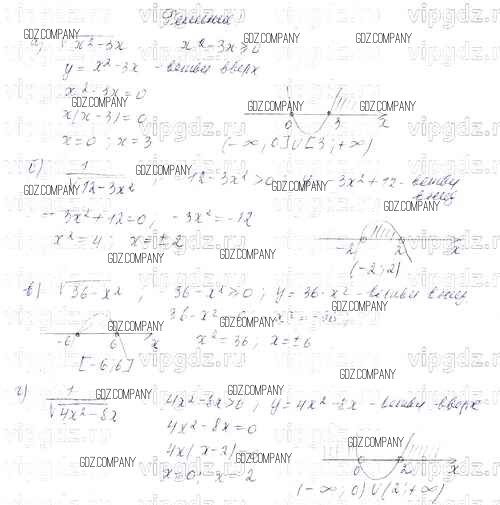 Решение
а) √x²-3x    x²-3x≥0
y = x²-3x - ветви вверх
x²-3x=0
x(x-3)=0
x=0; x=3
0 3 x
(-∞; 0]∪[3; +∞)
б) 1/√12-3x² ; 12-3x²>0 -3x²+12 - ветви вниз
-3x²+12=0; -3x²=-12
x²=4; x=±2
-2 2 x
(-2; 2)
в) √36-x² ; 36-x²≥0; y=36-x² - ветви вниз
x²=36; x=±6
-6 6 x
[-6; 6]
г) 1/√4x²-8x    4x²-8x>0; y=4x²-8x - ветви вверх
4x²-8x=0
4x(x-2)
x=0; x=2
0 2 x
(-∞; 0)∪(2; +∞)
GDZ.COMPANY
vipgdz.ru